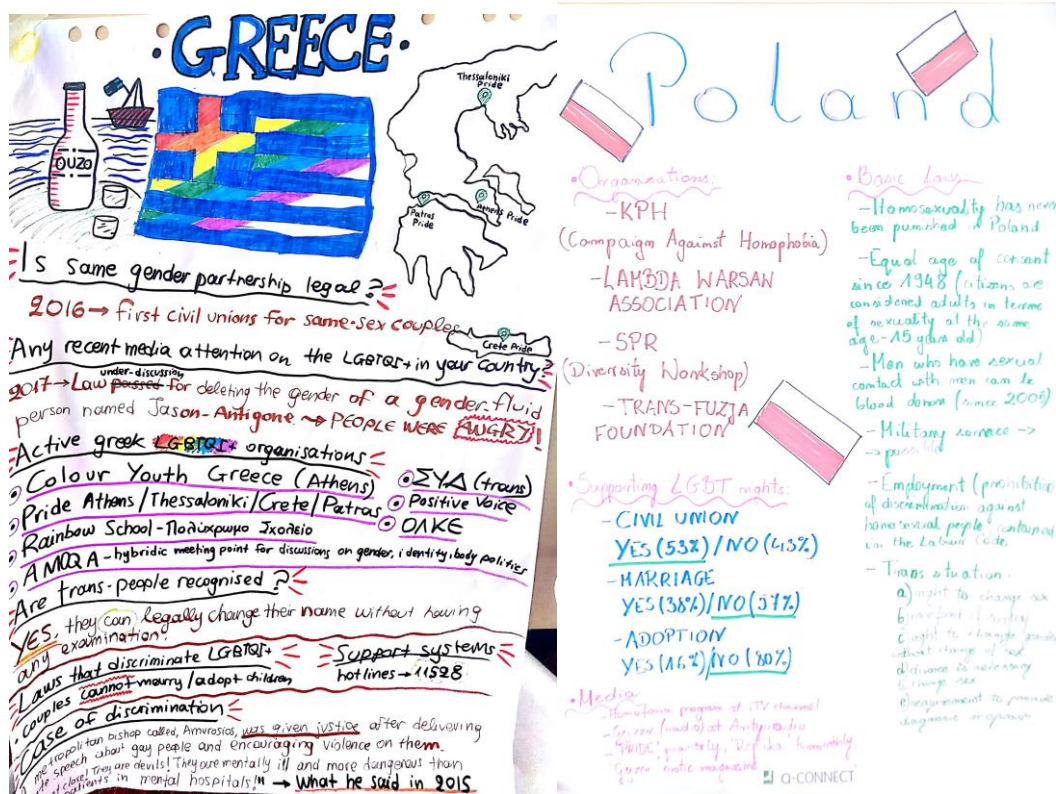 ·GREECE·
OUZO
Thessaloniki
Pride
Patras
Pride
Athens Pride
Crete Pride
Is same gender partnership legal?
2016→ first civil unions for same-sex couples
Any recent media attention on the LGBTQI+ in your country?
under-discussion
2017→Law passed for deleting the gender of a gender-fluid
person named Jason-Antigone ⤳ PEOPLE WERE ANGRY!
Active greek LGBTQI+ organisations
Colour Youth Greece (Athens)
Pride Athens/Thessaloniki/Crete/Patras
Rainbow School-Πολύχρωμο Σχολείο
AMOQA-hybridic meeting point for discussions on gender, identity, body politics
ΣΥΔ (trans)
Positive Voice
ΟΛΚΕ
Are trans-people recognised?
YES, they can legally change their name without having
any examination!
Laws that discriminate LGBTQI+
couples cannot marry/adopt children
Support systems
hotlines→11528
Case of discrimination
metropolitan bishop called, Amvrosios, was given justice after delivering
speech about gay people and encouraging violence on them.
close! They are devils! They are mentally ill and more dangerous than
patients in mental hospitals!" → What he said in 2015
Poland
•Organizations:
-KPH
(Campaign Against Homophobia)
-LAMBDA WARSAN
ASSOCIATION
-SPR
(Diversity Workshop)
-TRANS-FUZJA
FOUNDATION
•Supporting LGBT rights:
-CIVIL UNION
YES(53%)/NO(43%)
-MARRIAGE
YES(38%)/NO(57%)
-ADOPTION
YES(16%)/NO(80%)
•Media
program at iTV channel
at Antyradio
"PRIDE" quarterly, "Replika" bimonthly
magazine
•Basic laws
-Homosexuality has never
been punished in Poland
-Equal age of consent
since 1948 (citizens are
considered adults in terms
of sexuality at the same
age-15 years old)
-Men who have sexual
contact with men can be
blood donors (since 2005)
-Military service ->
-> possible
-Employment (prohibition
of discrimination against
homosexual people contained
in the Labour Code
-Trans situation
a) right to change sex
b)
c) right to change gender
without change of sex
d) divorce is necessary
to change sex
e) requirement to provide
diagnosis
Q-CONNECT